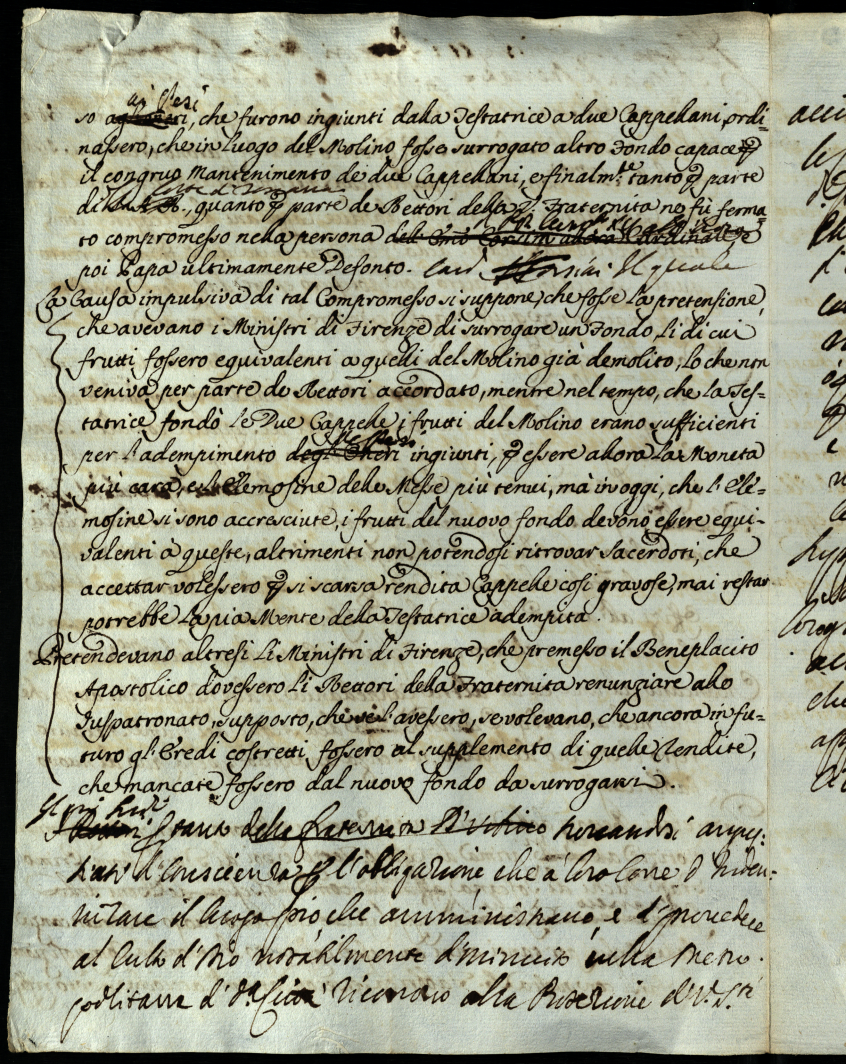 ai Pesi
so agli oneri, che furono ingiunti dalla Testatrice a due Cappellani, ordi-
nassero, che in luogo del Molino fosse surrogato altro Fondo capace p
il congruo Mantenimento de due Cappellani, e finalm.te tanto p parte
Corte di Toscana
di quanto p parte de Rettori della Fraternita ne fù ferma-
to compromesso nella persona del
poi Papa ultimamente Defonto. Card. Corsini Il quale
La Causa impulsiva di tal Compromesso si suppone, che fosse la pretensione,
che avevano i Ministri di Firenze di surrogare un Fondo, li di cui
frutti fossero equivalenti a quelli del Molino già demolito, lo che non
veniva per parte de Rettori accordato, mentre nel tempo, che la Tes-
tatrice fondò le Due Cappelle i frutti del Molino erano sufficienti
de Pesi
per l'adempimento degl'Oneri ingiunti, p essere allora la Moneta
più cara, e le Elemosine delle Messe più tenui, mà in oggi, che l'Ele-
mosine si sono accresciute, i frutti del nuovo fondo devono essere equi-
valenti à queste, altrimenti non potendosi ritrovar Sacerdoti, che
accettar volessero p si scarsa rendita Cappelle così gravose, mai restar
potrebbe la pia Mente della Testatrice adempita.
Pretendevano altresì li Ministri di Firenze, che premesso il Beneplacito
Apostolico dovessero li Rettori della Fraternita renunziare allo
Juspatronato, supposto, che se l'avessero, se volevano, che ancora in fu-
turo gl'Eredi costretti fossero al supplemento di quelle rendite,
che mancate fossero dal nuovo fondo da surrogarsi.
della fraternita trovandosi angus-
tiati di Conscienza p l'obbligazione che à loro corre d'Inden-
nizare il luogo pio che amministrano, e di provedere
al Culto d'Dio notabilmente diminuito nella Metro-
politana d'd.a Città ricorrono alla Protezione di V. S.tà